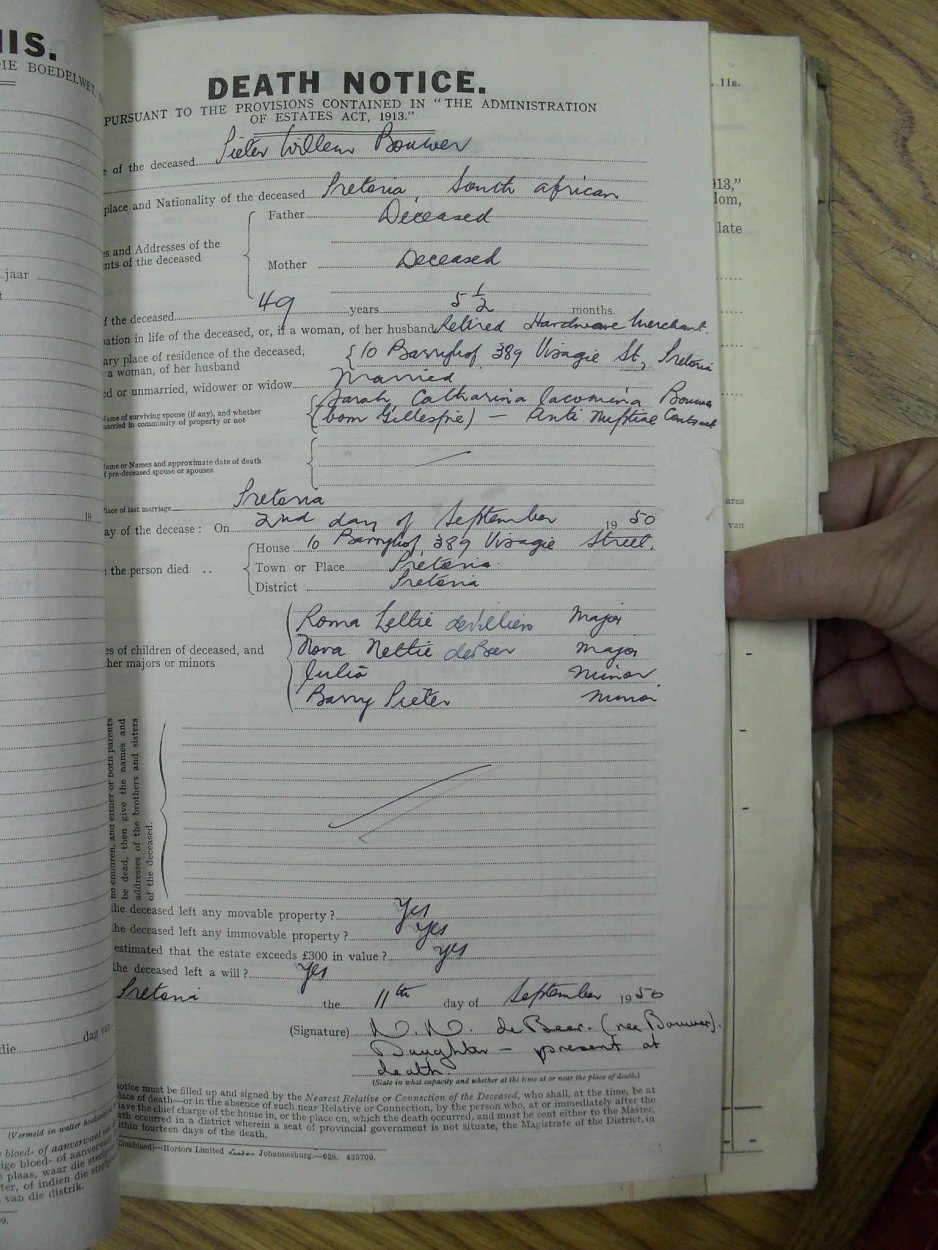 IS.
IE BOEDELWET,
DEATH NOTICE.
PURSUANT TO THE PROVISIONS CONTAINED IN "THE ADMINISTRATION
OF ESTATES ACT, 1913."
of the deceased Pieter Willem Bouwer
place and Nationality of the deceased Pretoria, South african
es and Addresses of the
nts of the deceased
Father Deceased
Mother Deceased
f the deceased 49 years 5 1/2 months.
pation in life of the deceased, or, if a woman, of her husband Retired Hardware Merchant.
ary place of residence of the deceased,
a woman, of her husband
10 Barryhof 389 Visagie St, Pretoria
ed or unmarried, widower or widow Married
Name of surviving spouse (if any), and whether
married in community of property or not
Sarah Catharina Jacomina Bouwer
(born Gillespie) - Anti Nuptial Contract
Name or Names and approximate date of death
f pre-deceased spouse or spouses
Place of last marriage Pretoria
ay of the decease: On 2nd day of September 19 50
the person died ..
House 10 Barryhof, 389 Visagie Street.
Town or Place Pretoria.
District Pretoria
es of children of deceased, and
her majors or minors
Roma Lettie deVilliers Major
Nova Nettie deBeer Major
Julia minor
Barry Pieter minor
no children, and either or both parents
be dead, then give the names and
addresses of the brothers and sisters
of the deceased.
he deceased left any movable property? Yes
he deceased left any immovable property? Yes
estimated that the estate exceeds £300 in value? Yes
he deceased left a will? Yes
Pretoria the 11th day of September 1950
(Signature) N. N. de Beer. (nee Bouwer).
Daughter - present at
death.
(State in what capacity and whether at the time at or near the place of death.)
notice must be filled up and signed by the Nearest Relative or Connection of the Deceased, who shall, at the time, be at
lace of death—or in the absence of such near Relative or Connection, by the person who, at or immediately after the
have the chief charge of the house in, or the place on, which the death occurred, and must be sent either to the Master,
ath occurred in a district wherein a seat of provincial government is not situate, the Magistrate of the District, in
ithin fourteen days of the death.
Combined)—Hortors Limited Johannesburg.—628. 435709.
jaar
19
dag van
die
(Vermeld in watter hoedanigheid
bloed- of aanverwant
ige bloed- of aanverwant
plaas, waar die
ter, of indien die
van die distrik.
9.
. 11a.
13,"
dom,
late
area
van